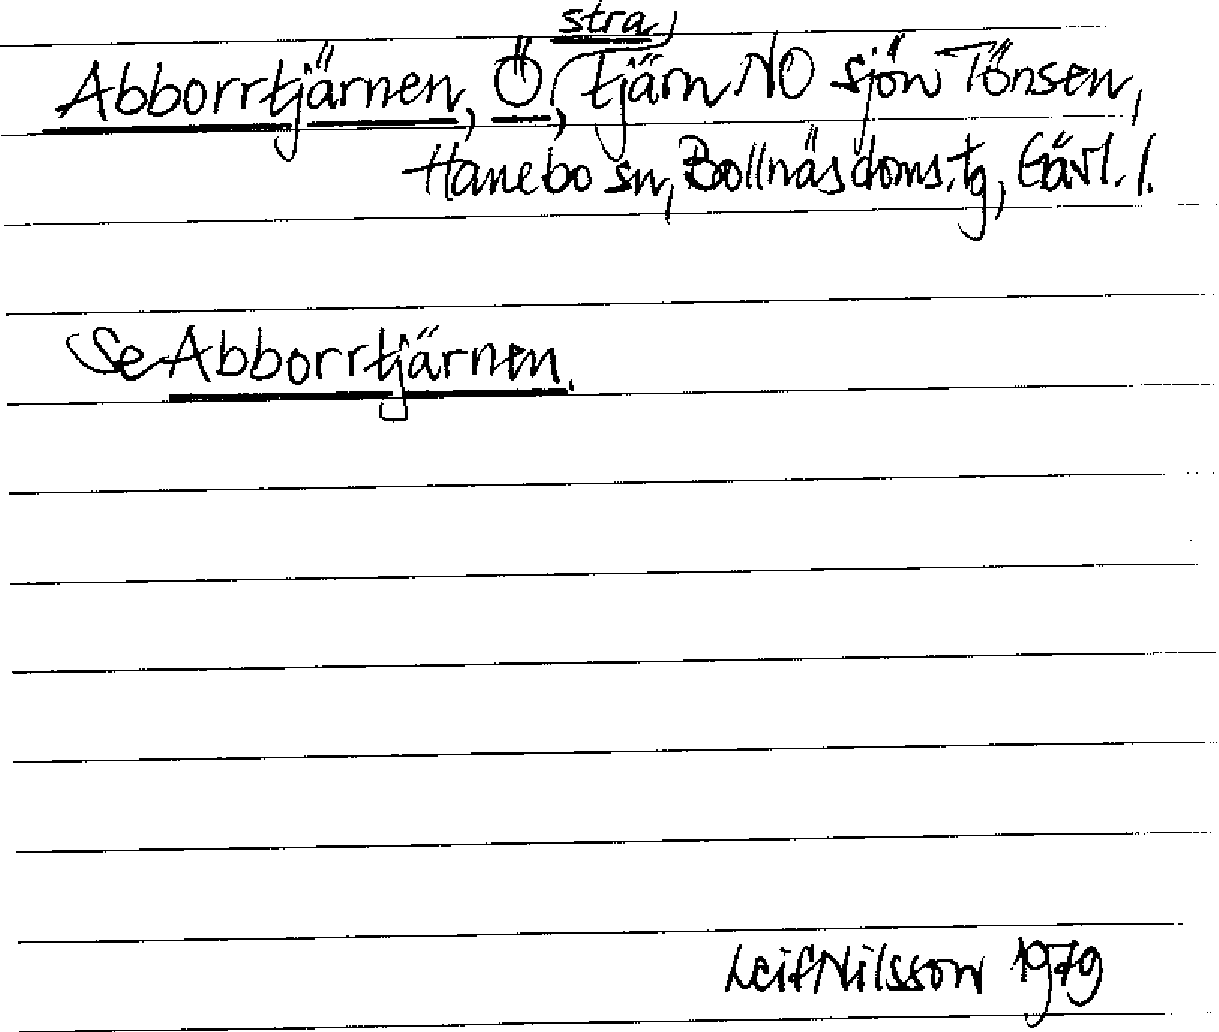 Abborrtjärnen, Östra, tjärn NO sjön Tönsen,
Hanebo sn, Bollnäs doms.tg, Gävl. l.
Se Abborrtjärnen.
Leif Nilsson 1979